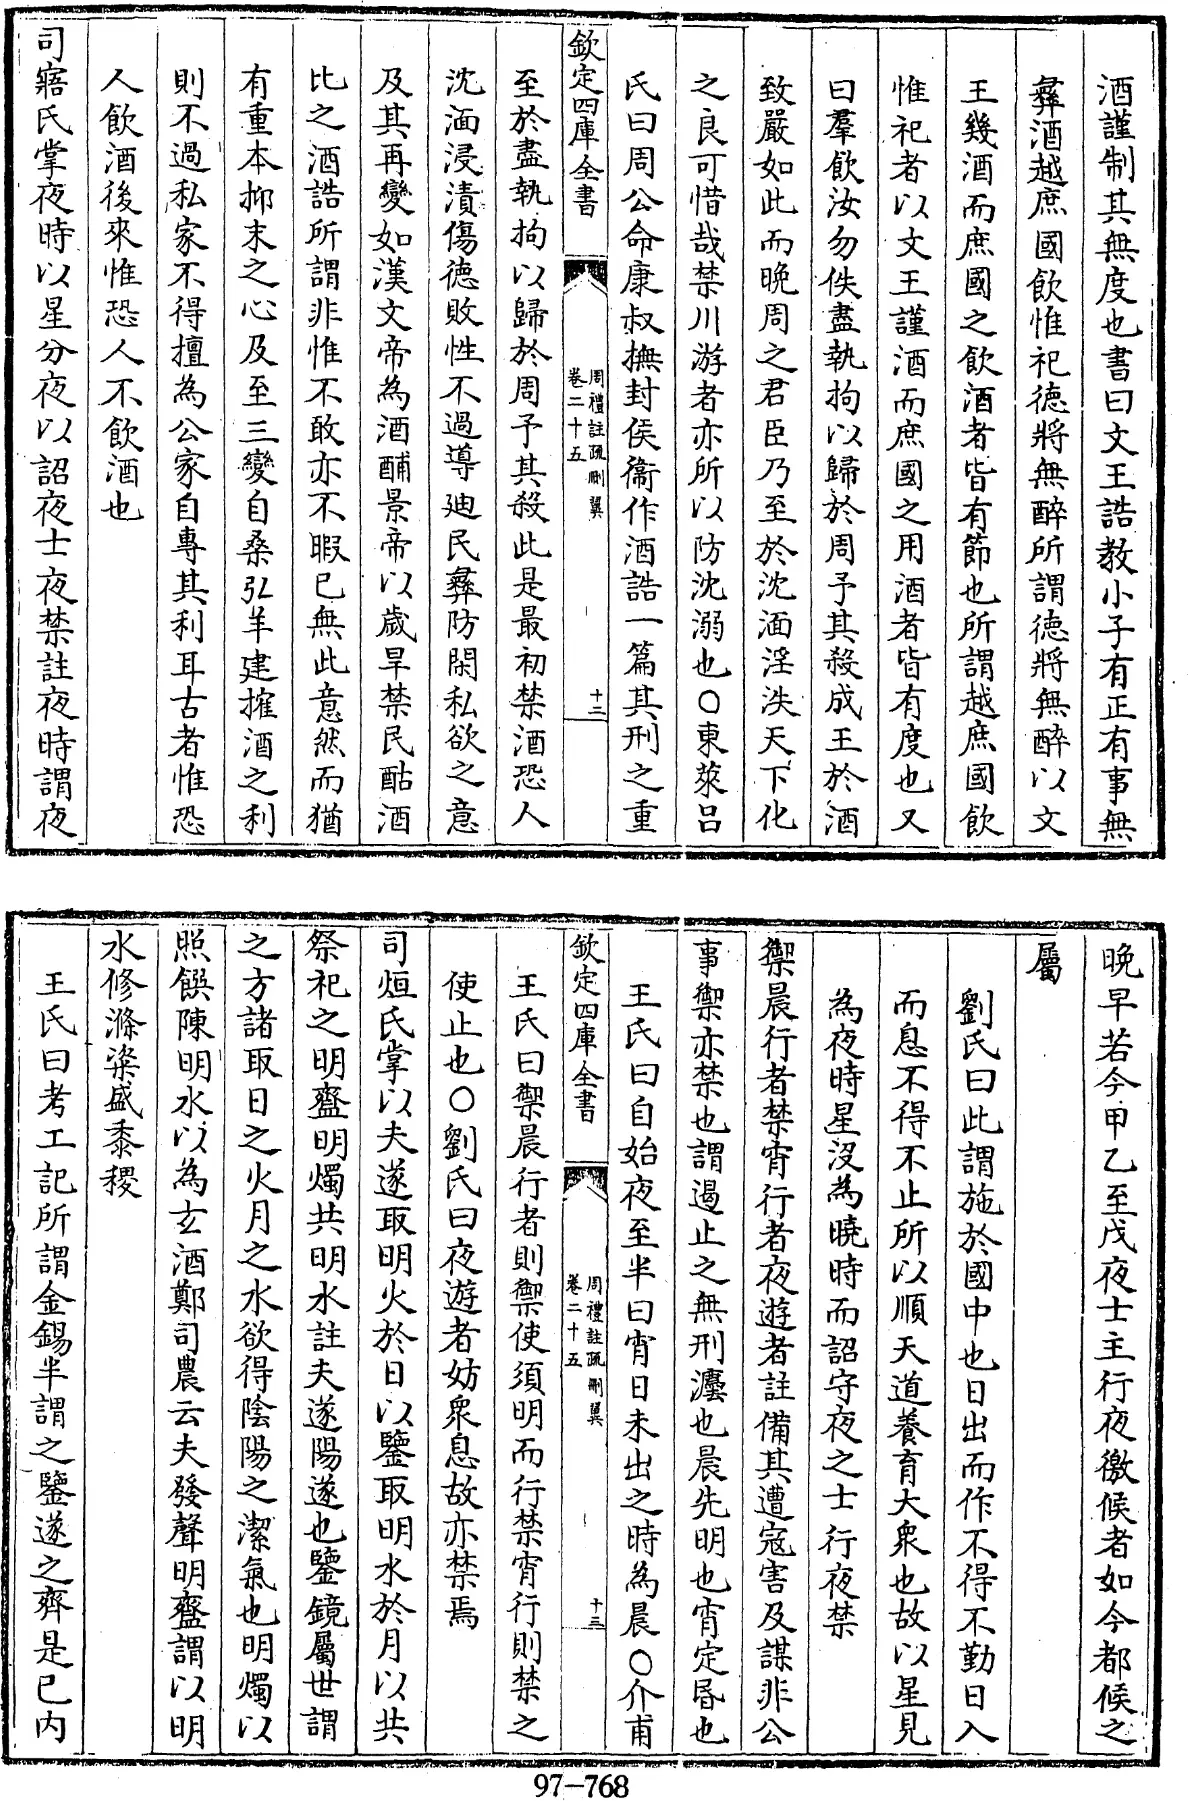 酒謹制其無度也書曰文王誥教小子有正有事無
彞酒越庶國飲惟祀德將無醉所謂德將無醉以文
王幾酒而庶國之飲酒者皆有節也所謂越庶國飲
惟祀者以文王謹酒而庶國之用酒者皆有度也又
曰羣飲汝勿佚盡執拘以歸於周予其殺成王於酒
致嚴如此而晚周之君臣乃至於沈湎淫泆天下化
之良可惜哉禁川游者亦所以防沈溺也○東萊呂
氏曰周公命康叔撫封侯衞作酒誥一篇其刑之重
欽定四庫全書
周禮註疏刪翼
卷二十五
十二
至於盡執拘以歸於周予其殺此是最初禁酒恐人
沈湎浸漬傷德敗性不過導廸民彞防閑私欲之意
及其再變如漢文帝為酒酺景帝以歲旱禁民酤酒
比之酒誥所謂非惟不敢亦不暇已無此意然而猶
有重本抑末之心及至三變自桑弘羊建搉酒之利
則不過私家不得擅為公家自專其利耳古者惟恐
人飲酒後來惟恐人不飲酒也
司寤氏掌夜時以星分夜以詔夜士夜禁註夜時謂夜
晚早若今甲乙至戊夜士主行夜徼候者如今都候之
屬
劉氏曰此謂施於國中也日出而作不得不勤日入
而息不得不止所以順天道養育大衆也故以星見
為夜時星沒為曉時而詔守夜之士行夜禁
禦晨行者禁宵行者夜遊者註備其遭寇害及謀非公
事禦亦禁也謂遏止之無刑灋也晨先明也宵定昏也
王氏曰自始夜至半曰宵日未出之時為晨○介甫
欽定四庫全書
周禮註疏刪翼
卷二十五
十三
王氏曰禦晨行者則禦使須明而行禁宵行則禁之
使止也○劉氏曰夜遊者妨衆息故亦禁焉
司烜氏掌以夫遂取明火於日以鑒取明水於月以共
祭祀之明齍明燭共明水註夫遂陽遂也鑒鏡屬世謂
之方諸取日之火月之水欲得陰陽之潔氣也明燭以
照饌陳明水以為玄酒鄭司農云夫發聲明齍謂以明
水修滌粢盛黍稷
王氏曰考工記所謂金錫半謂之鑒遂之齊是已内
97-768